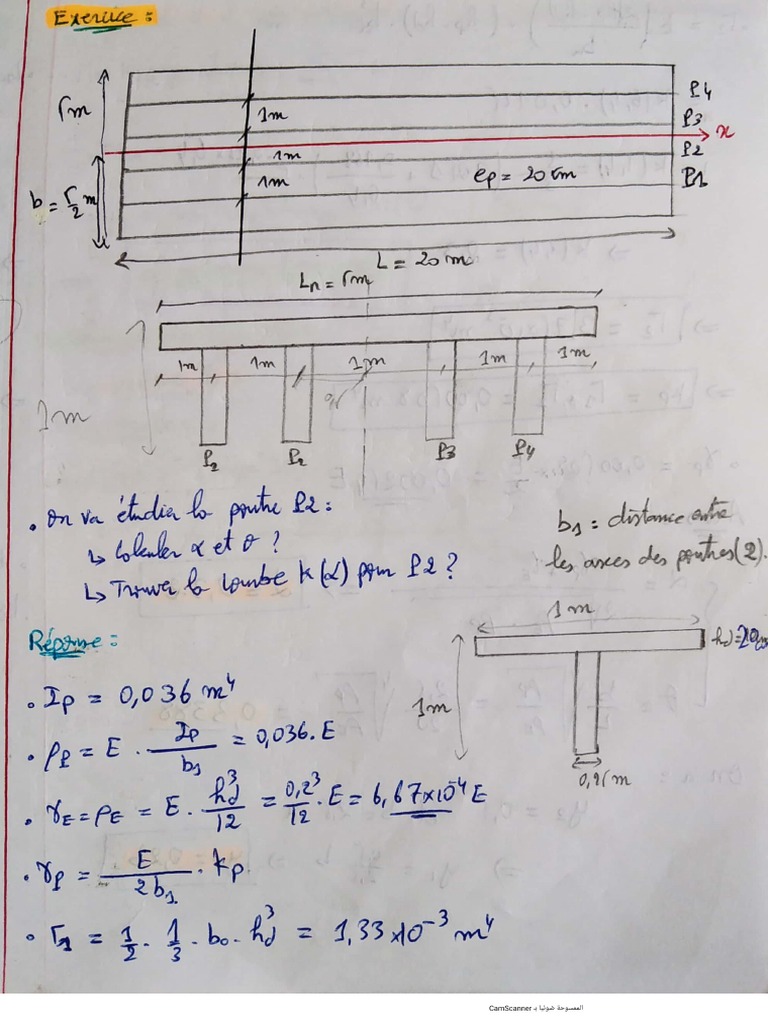 Exercice :
5m
P4
1m
P3
x
1m
P2
1m
ep = 20 cm
P1
b = 5/2 m
L = 20 m
Ln = 5m
1m 1m 1m 1m 1m
1m
P2 P2 P3 P4
. On va étudier la poutre P2 :
↳ Calculer α et θ ?
↳ Trouver la courbe K(α) pour P2 ?
b1 = distance entre
les axces des poutres (2).
Réponse :
1m
hd = 20cm
1m
0,25m
• IP = 0,036 m⁴
• ρP = E · IP/b1 = 0,036 . E
• γE = ρE = E · hd³/12 = 0,2³/12 · E = 6,67×10⁻⁴ E
• γP = E/2b1 · KP
• Γ1 = 1/2 · 1/3 · b0 · hd³ = 1,33×10⁻³ m⁴
الممسوحة ضوئيا بـ CamScanner